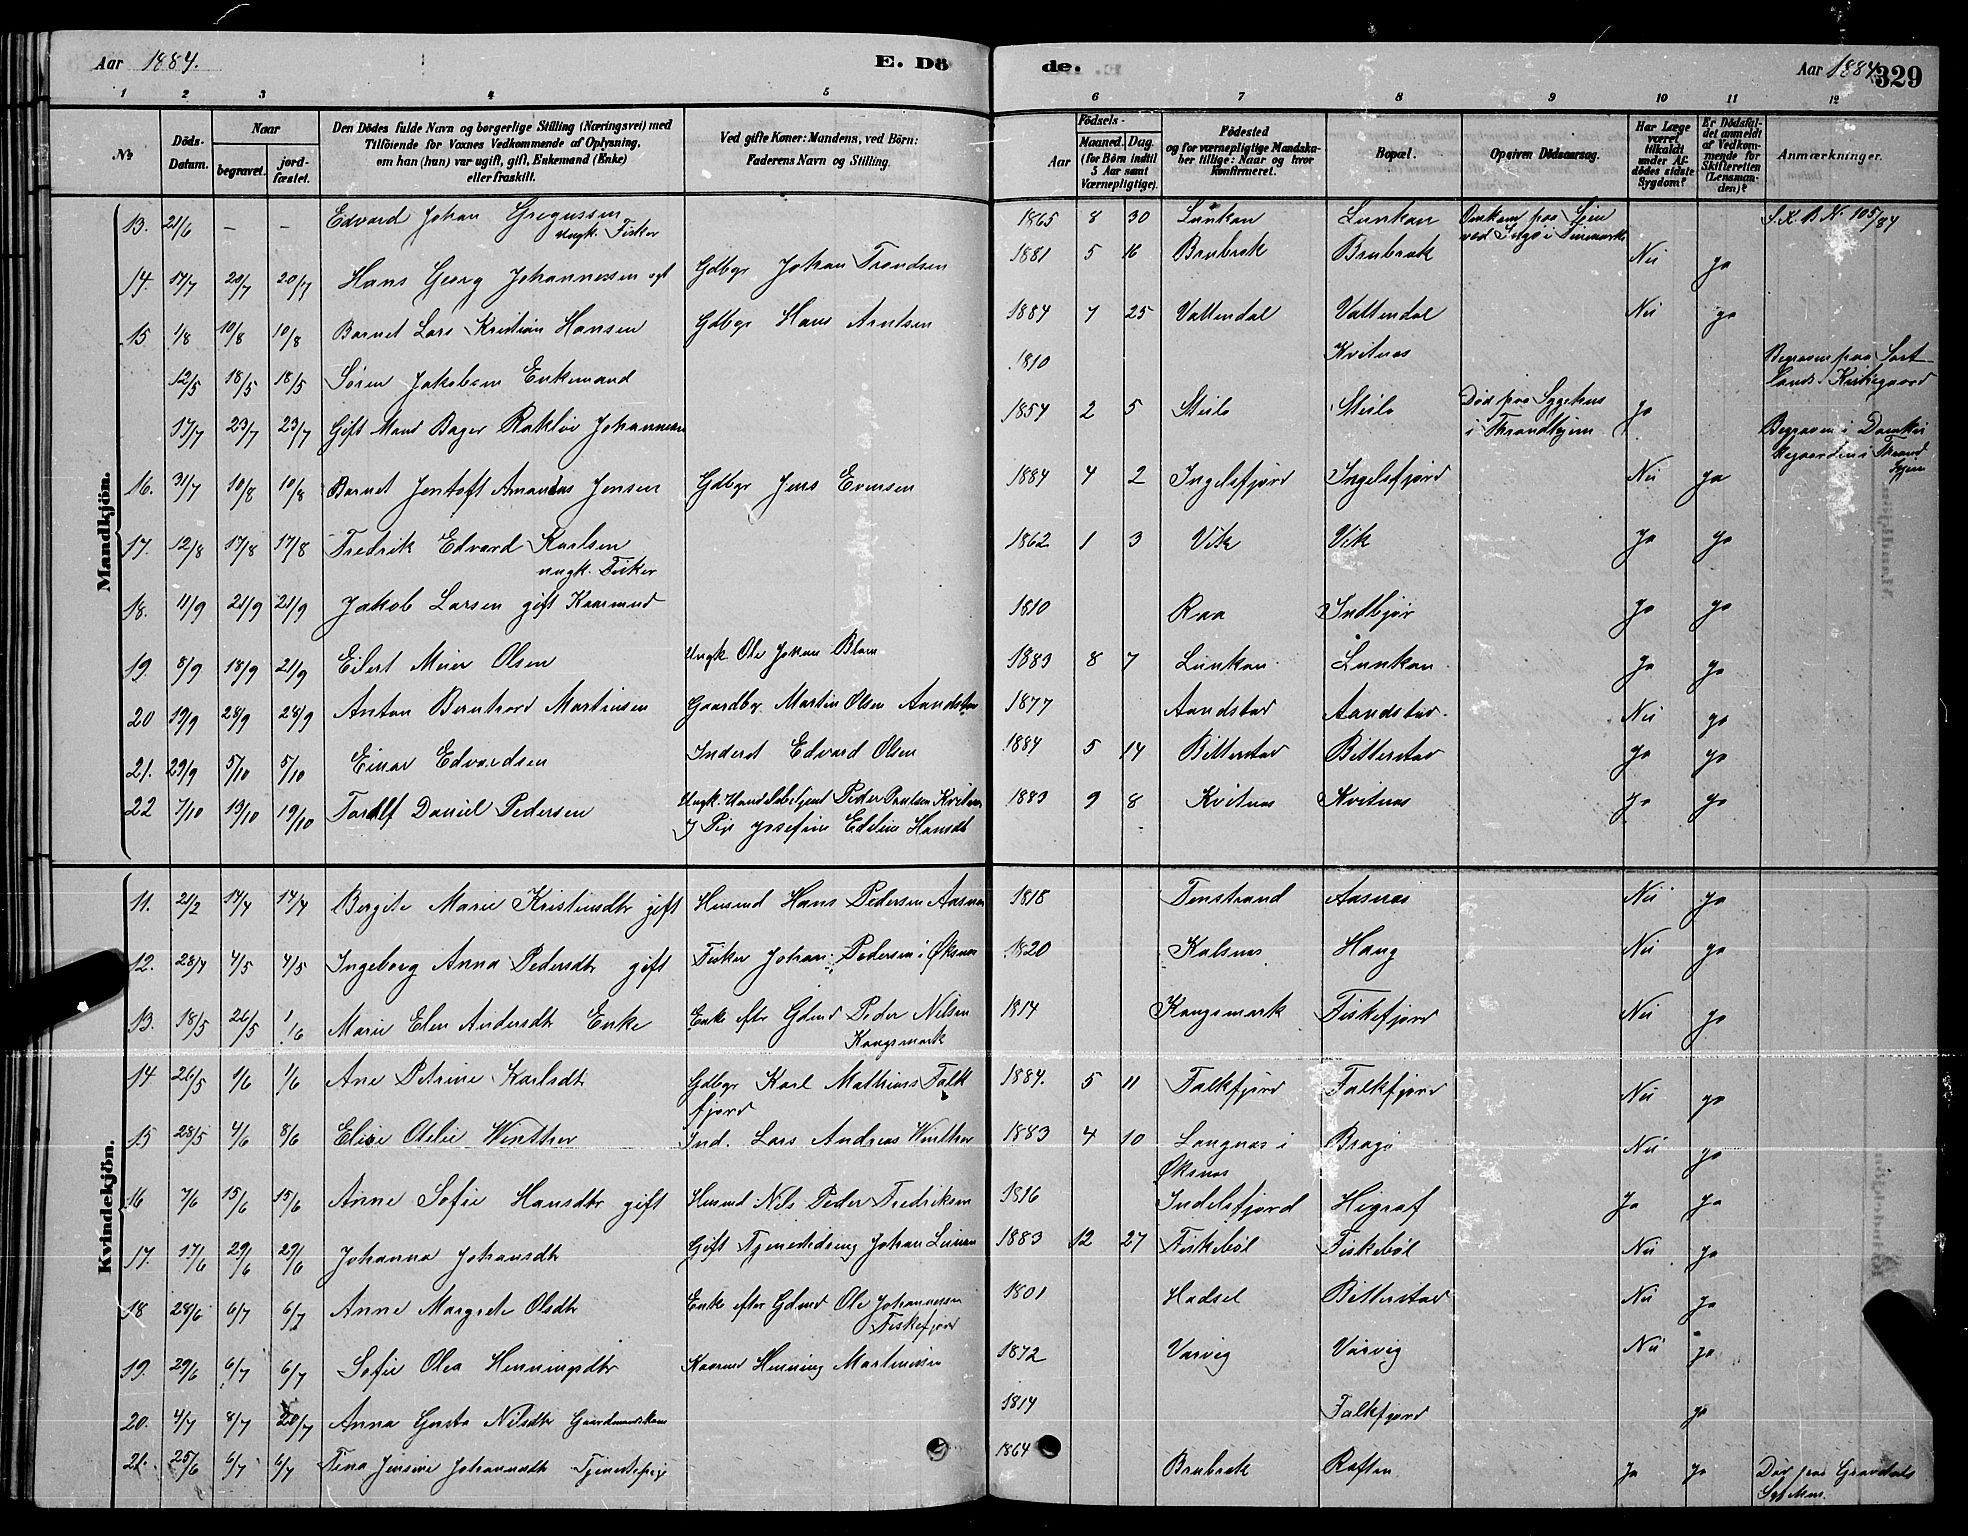 Aar 1884. E. Dö de. Aar 1884 329
1 2 3 4 5 6 7 8 9 10 11 12
No Döds-Datum. Naar begravet. jordfæstet. Den Dödes fulde Navn og borgerlige Stilling (Næringsvei) med Tilföiende for Voxnes Vedkommende af Oplysning, om han (hun) var ugift, gift, Enkemand (Enke) eller fraskilt. Ved gifte Koner: Mandens, ved Börn: Faderens Navn og Stilling. Födsels- Aar Maaned. Dag. (for Börn indtil 5 Aar samt Værnepligtige). Födested og for værnepligtige Mandskaber tillige: Naar og hvor konfirmeret. Bopæl. Opgiven Dödsaarsag. Har Læge været tilkaldt under Afdödes sidste Sygdom? Er Dödsfaldet anmeldt af Vedkommende for Skifteretten (Lensmanden)? Anmærkninger.
Mandkjön.
13. 21/6 - - Edvard Johan Gregussen ungk. Fisker 1865 8 30 Lunkan Lunkan Omkom paa Sjøen ved i Finmarken S.K.B. No 105/84
14. 17/7 20/7 20/7 Hans Georg Johannessen Gdbgr Johan Trondsen 1881 5 16 Brubrek Brubrek Nei ja
15 1/8 10/8 10/8 Barnet Lars Kristian Hansen Gdbgr Hans Arntsen 1884 7 25 Vattendal Vattendal Nei ja
12/5 18/5 18/5 Søren Jakobsen Enkemand 1810 Kvitnes Begraven paa Sortlands Kirkegaard
17/7 23/7 23/7 Gift Mand Bager Johannesen 1854 2 5 Steilo Steilo Død paa Sygehus i Throndhjem ja Begraven i Domkirkegaarden i Throndhjem
16. 31/7 10/8 10/8 Barnet Jentoft Amandus Jensen Gdbgr Jens Evensen 1884 4 2 Ingelsfjord Ingelsfjord Nei ja
17. 12/8 17/8 17/8 Fredrik Edvard Karlsen ungk. Fisker 1862 1 3 Vik Vik ja ja
18. 11/9 21/9 21/9 Jakob Larsen gift Kaarmand 1810 Raa Indbjør ja ja
19. 8/9 18/9 21/9 Eilert Meier Olsen Ungk Ole Johan Blom 1883 8 7 Lunkan Lunkan ja ja
20 19/9 28/9 28/9 Anton Berntzord Martinsen Gaardbgr. Martin Olsen Aandstad 1877 Aandstad Aandstad. Nei ja
21. 29/9 5/10 5/10 Einar Edvardsen Inderst Edvard Olsen 1884 5 14 Bitterstad Bitterstad ja ja
22 7/10 19/10 19/10 Toralf Daniel Pedersen Ungk. Handelsbetjent Peder Paulsen Kvitnes Pige Josefine Edeline Hansdt 1883 9 8 Kvitnes Kvitnes ja ja
Kvindekjön.
11. 21/2 14/4 14/4 Bergite Marie Kristensdtr gift Husmd Hans Pedersen Aasnes 1818 Fenstrand Aasnes Nei ja
12. 28/4 4/5 4/5 Ingeborg Anna Pedersdtr gift Fisker Johan Pedersen i Øksnes 1820 Kalsnes Haug Nei ja
13. 18/5 26/5 1/6 Marie Elen Andersdtr Enke Enke efter Gdmd Peder Nilsen Kongsmark 1814 Kongsmark Fiskefjord Nei ja
14 26/5 1/6 1/6 Ane Petrine Karlsdtr Gdbgr Karl Mathias Falkfjord 1884. 5 11 Falkfjord Falkfjord Nei ja
15 28/5 4/6 8/6 Elise Otelie Winther Ind. Lars Andreas Winther 1883 4 10 Langnes i Øksnes Bragi Nei ja
16 7/6 15/6 15/6 Anne Sofie Hansdtr gift Husmd Nils Peder Fredriksen 1816 Indelsfjord Higraf ja ja
17. 17/6 29/6 29/6 Johanna Johansdtr Gift Tjenestedreng Johan 1883 12 27 Fiskebøl Fiskebøl Nei ja
18 28/6 6/7 6/7 Anne Margrete Olsdtr Enke efter Gdmd Ole Johannesen Fiskefjord 1801 Hadsel Bitterstad Nei ja
19. 29/6 6/7 6/7 Sofie Olea Henningsdtr Kaarmd Henning Martinusen 1872 Varvig Varvig Nei ja
20. 4/7 8/7 20/7 Anna Gurta Nilsdtr Gaardmandskone 1814 Falkfjord ja
21. 25/6 6/7 6/7 Tina Jensine Johannesdtr Tjenestepige 1864 Brubrek Raften Ja ja Død paa Gravdals